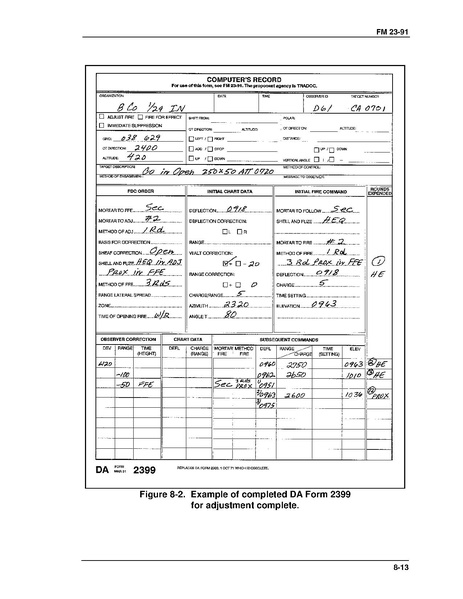 FM 23-91
COMPUTER'S RECORD
For use of this form, see FM 23-91. The proponent agency is TRADOC.
ORGANIZATION DATE TIME OBSERVER ID TARGET NUMBER
B Co 1/29 IN D61 CA 0701
ADJUST FIRE FIRE FOR EFFECT
IMMEDIATE SUPPRESSION
SHIFT FROM: POLAR:
OT DIRECTION: ALTITUDE: OT DIRECTION: ALTITUDE:
GRID: 038 629 LEFT / RIGHT DISTANCE:
OT DIRECTION: 2400 ADD / DROP UP / DOWN
ALTITUDE: 420 UP / DOWN VERTICAL ANGLE + -
TARGET DESCRIPTION: Co in Open 250x50 ATT 0720 METHOD OF CONTROL:
METHOD OF ENGAGEMENT: MESSAGE TO OBSERVER:
FDC ORDER INITIAL CHART DATA INITIAL FIRE COMMAND ROUNDS EXPENDED
MORTAR TO FFE Sec DEFLECTION 0918 MORTAR TO FOLLOW Sec
MORTAR TO ADJ #2 DEFLECTION CORRECTION: SHELL AND FUZE HEQ
METHOD OF ADJ 1 Rd L R
BASIS FOR CORRECTION RANGE MORTAR TO FIRE #2
SHEAF CORRECTION Open VI/ALT CORRECTION: METHOD OF FIRE 1 Rd
SHELL AND FUZE HEQ in ADJ - 20 3 Rd Prox in FFE 1
Prox in FFE RANGE CORRECTION: DEFLECTION 0918 HE
METHOD OF FFE 3 Rds + - 0 CHARGE 5
RANGE LATERAL SPREAD CHARGE/RANGE 5 TIME SETTING
ZONE AZIMUTH 2320 ELEVATION 0963
TIME OF OPENING FIRE W/R ANGLE T 80
OBSERVER CORRECTION CHART DATA SUBSEQUENT COMMANDS
DEV RANGE TIME (HEIGHT) DEFL CHARGE (RANGE) MORTAR FIRE METHOD FIRE DEFL RANGE CHARGE TIME (SETTING) ELEV
0960 0963 HE
-100 0962 2650 1010 HE
-50 FFE Sec PROX 0951
0963 2600 1036 PROX
0975
DA FORM 2399
REPLACES DA FORM 2399, 1 OCT 71 WHICH IS OBSOLETE.
Figure 8-2. Example of completed DA Form 2399
for adjustment complete.
8-13